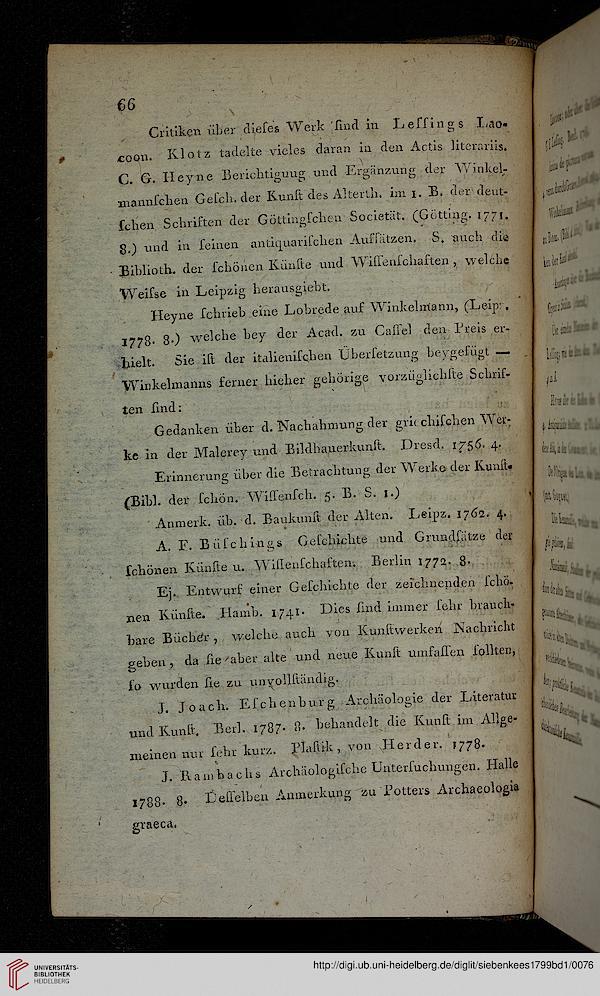 66
Critiken über dieſes Werk ſind in Leſſings Lao-
coon. Klotz tadelte vieles daran in den Actis literariis.
C. G. Heyne Berichtigung und Ergänzung der Winkel-
mannſchen Geſch. der Kunſt des Alterth. im 1. B. der deut-
ſchen Schriften der Göttingſchen Societät. (Götting. 1771.
8.) und in ſeinen antiquariſchen Aufſätzen. S. auch die
Biblioth. der ſchönen Künſte und Wiſſenſchaften, welche
Weiſse in Leipzig herausgiebt.
Heyne ſchrieb eine Lobrede auf Winkelmann, (Leipz.
1778. 8.) welche bey der Acad. zu Caſſel den Preis er-
hielt. Sie iſt der italieniſchen Überſetzung beygefügt —
Winkelmanns ferner hieher gehörige vorzüglichſte Schrif-
ten ſind:
Gedanken über d. Nachahmung der griechiſchen Wer-
ke in der Malerey und Bildhauerkunſt. Dresd. 1756. 4.
Erinnerung über die Betrachtung der Werke der Kunſt.
(Bibl. der ſchön. Wiſſenſch. 5. B. S. 1.)
Anmerk. üb. d. Baukunſt der Alten. Leipz. 1762. 4.
A. F. Büſchings Geſchichte und Grundſätze der
ſchönen Künſte u. Wiſſenſchaften. Berlin 1772. 8.
Ej. Entwurf einer Geſchichte der zeichnenden ſchö-
nen Künſte. Hamb. 1741. Dies ſind immer ſehr brauch-
bare Bücher, welche auch von Kunſtwerken Nachricht
geben, da ſie aber alte und neue Kunſt umfaſſen ſollten,
ſo wurden ſie zu unvollſtändig.
J. Joach. Eſchenburg Archäologie der Literatur
und Kunſt. Berl. 1787. 8. behandelt die Kunſt im Allge-
meinen nur ſehr kurz. Plaſtik, von Herder. 1778.
J. Rambachs Archäologiſche Unterſuchungen. Halle
1788. 8. Deſſelben Anmerkung zu Potters Archaeologia
graeca.
UNIVERSITÄTS-
BIBLIOTHEK
HEIDELBERG
http://digi.ub.uni-heidelberg.de/diglit/siebenkees1799bd1/0076